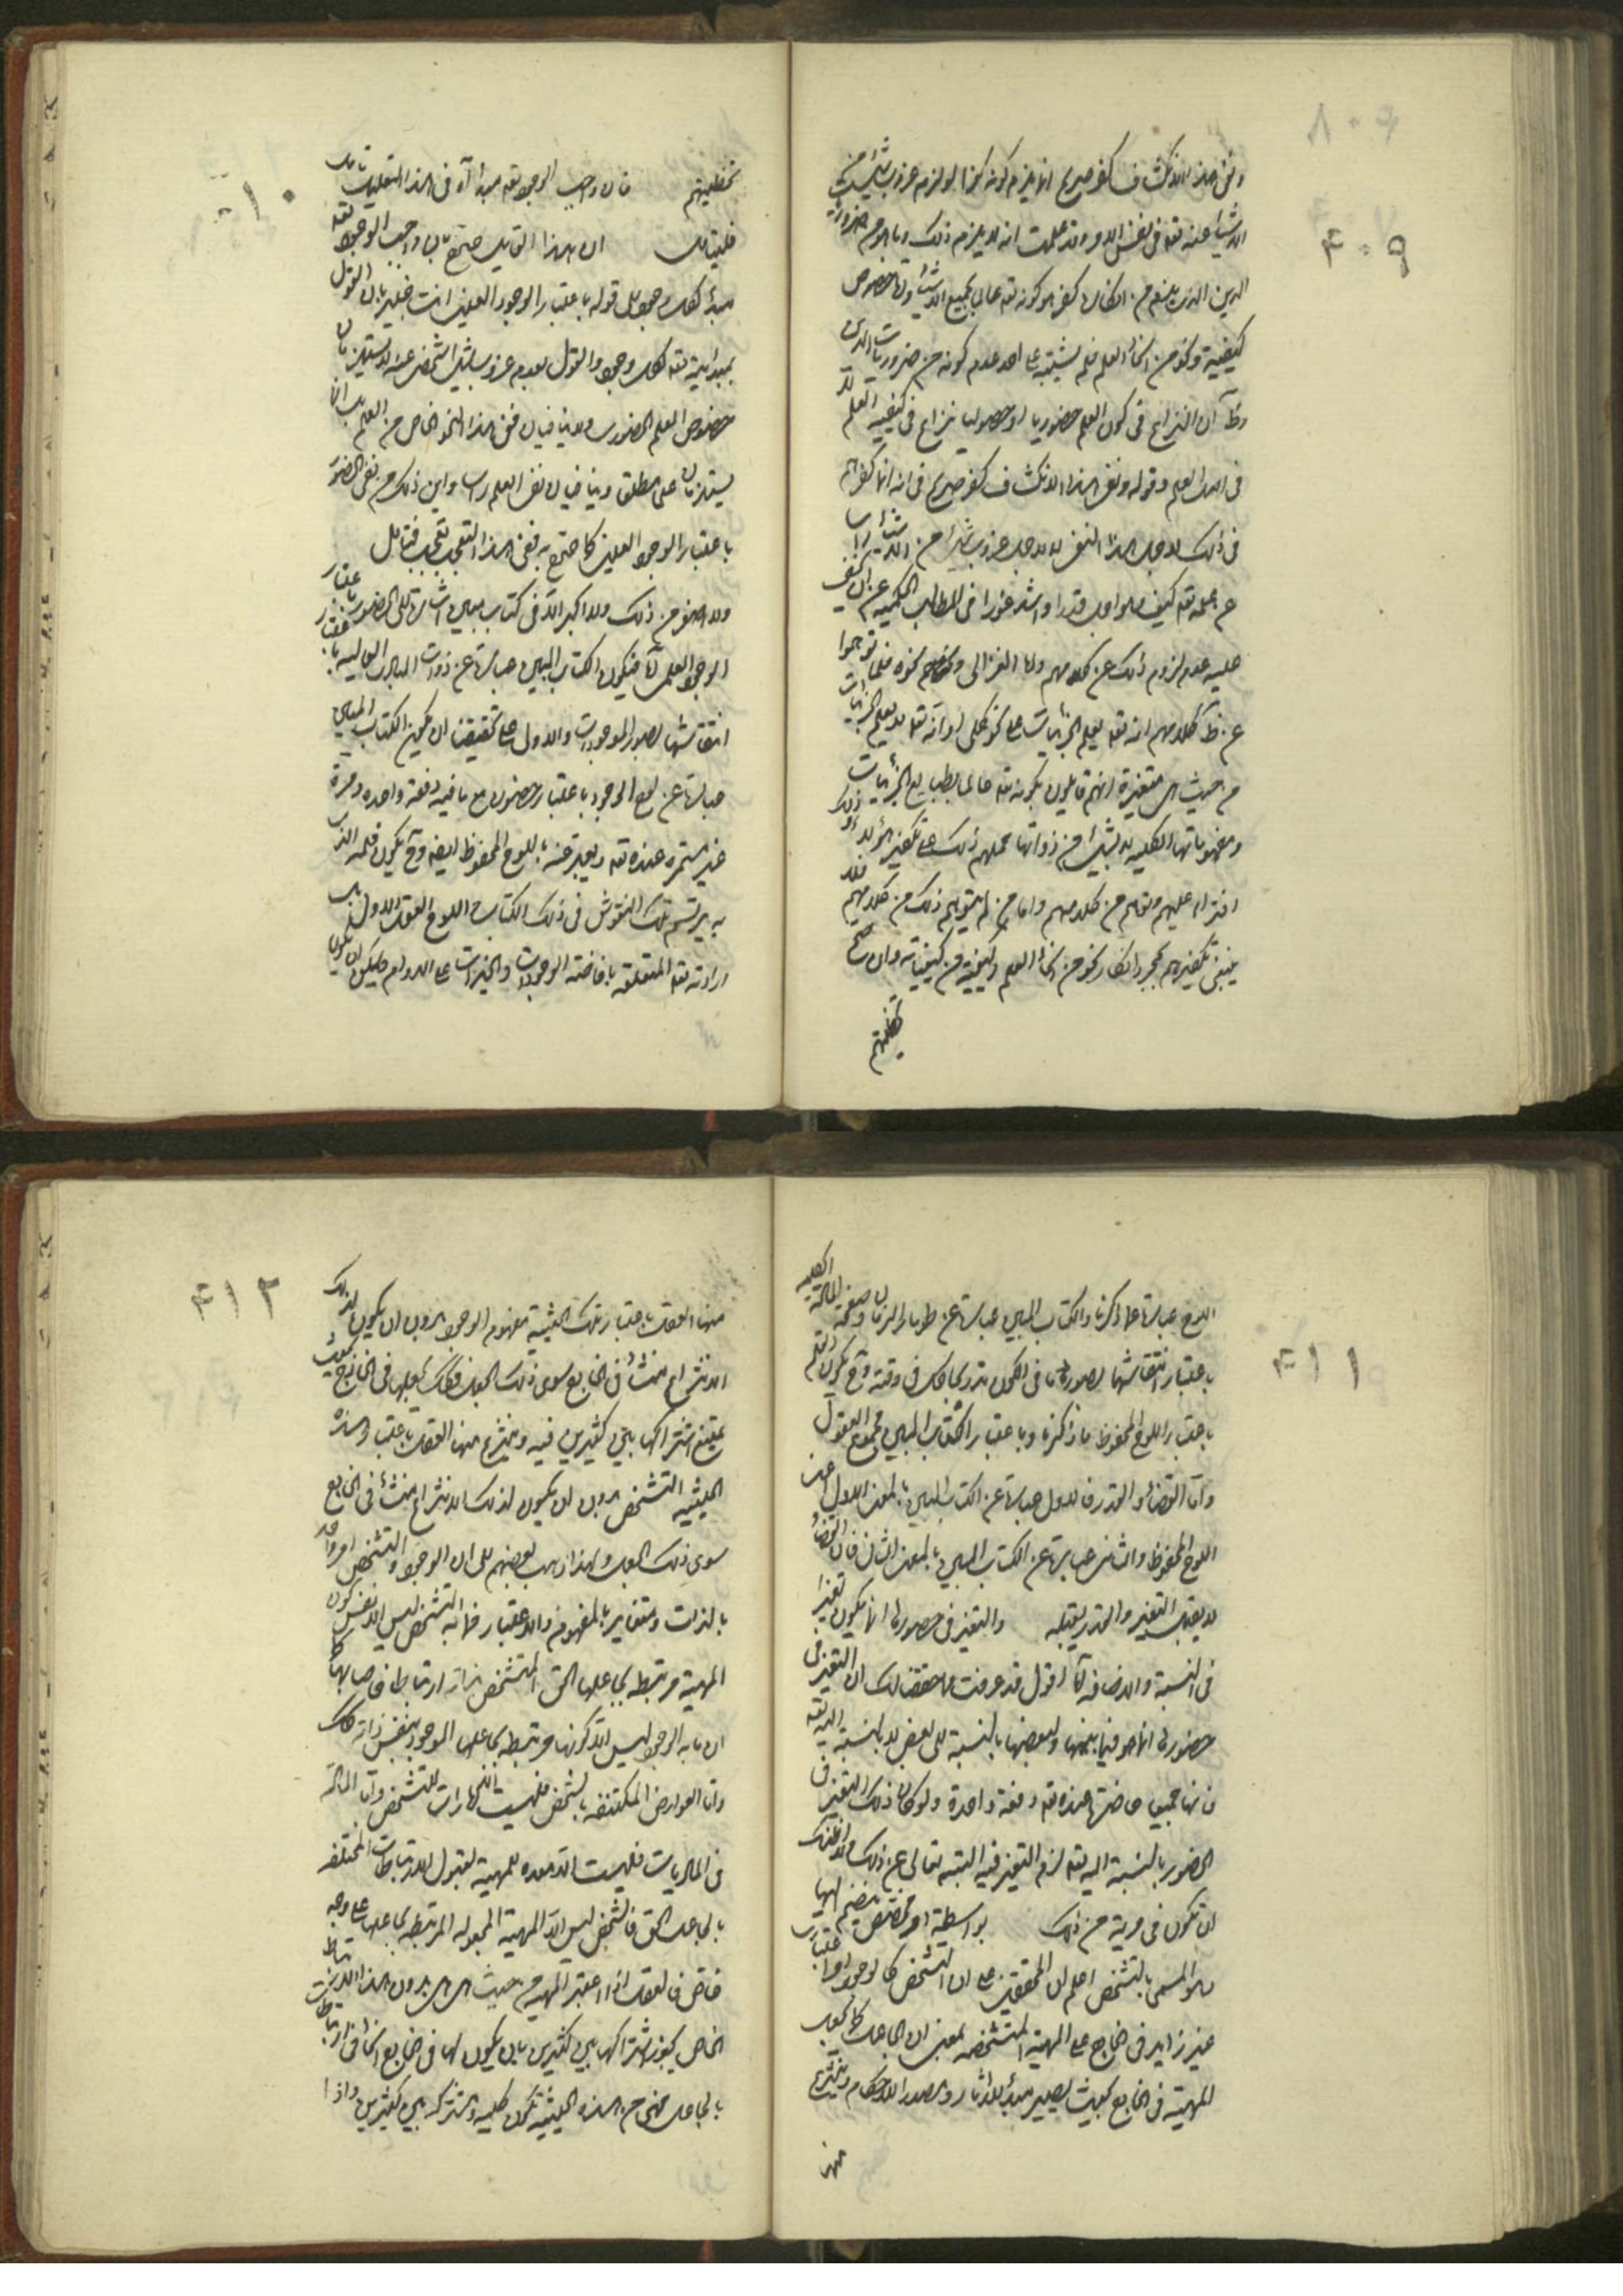 ونفى هذا الانكشاف كفر صريح انما يلزم كونه كفرا لو لزم عزوب شيء من
الاشياء عنه تعه في نفس الامر وقد علمت انه لا يلزم ذلك وما هو من ضروريات
الدين الذي يلزم من انكارها كفر هو كونه تعه عالما بجميع الاشياء واما خصوص
كيفية ونحو من انحاء العلم فلم يشتبه على احد عدم كونه من ضروريات الدين
وظ ان النزاع في كون العلم حضوريا او حصوليا نزاع في كيفية العلم لا
في اصل العلم وقوله ونفى هذا الانكشاف كفر صريح فيه انه انما كفرهم
في ذلك لاجل هذا النفى لا لاجل عزوب شيء من الاشياء
عن علمه تعه كيف وهو اجل قدرا واشد غورا في المطالب الحكمية عن ان يخفى
عليه عدم لزوم ذلك عن كلامهم واما الغزالي ونحوه فلما توهموا
عن ظ كلامهم انه تعه يعلم الجزئيات على نحو كلي او انه تعه لا يعلم الجزئيات
من حيث هي متغيرة انهم قايلون بكونه تعه عالما بطبايع الجزئيات
ومفهوماتها الكلية لا بشيء من ذواتها حملهم ذلك على تكفير هؤلاء وذلك
افتراء عليهم وتوهم من كلامهم واما من لم يتوهم ذلك من كلامهم فلا
ينبغي تكفيرهم بمجرد انكار نحو من انحاء العلم وكيفية من كيفياته وان صح
تخطئتهم
٤٠٩
تخطئتهم فان واجب الوجود تعه مبدا آه في هذا التعليل تامل
فليتامل ان هذا القايل صرح بان واجب الوجود تعه
مبدأ لكل وجود بل قوله باعتبار الوجود العلمي انت خبير بان القول
بمبدائيته تعه لكل وجود والقول بعدم عزوب شيء شخصي عنه لا يستلزمان
خصوص العلم الحضوري ولا ينافيان نفى هذا النحو الخاص من العلم بل انما
يستلزمان علم المطلق وينافيان نفى العلم راسا واين ذلك من نفى الحضور
باعتبار الوجود العيني كما صرح به ففى هذا التعجب تعجب فتامل
ولا اصغر من ذلك ولا اكبر الا في كتاب مبين اشارة الى الحضور باعتبار
الوجود العلمي فيكون الكتاب المبين عبارة عن ذوات المبادى العالية باعتبار
انتقاشها بصور الموجودات والاولى على تحقيقنا ان يكون الكتاب المبين
عبارة عن لوح الوجود باعتبار حضوره مع ما فيه دفعة واحدة ومرة
غير مستمرة عنده تعه ويعبر عنه باللوح المحفوظ ايضا وح يكون قلمه الذي
به يرتسم تلك النقوش في ذلك الكتاب واللوح العقل الاول بل
ارادته تعه المتعلقة بافاضة الوجودات والخيرات على الدوام فيمكن ان يكون
١٠
اللوح عبارة عما ذكرنا والكتاب المبين عبارة عن طومار الزمان وصفحة المادة الكلية
باعتبار انتقاشها بصور ما في الكون تدريجا كل في وقته وح يكون القلم
باعتبار اللوح المحفوظ ما ذكرنا وباعتبار الكتاب المبين مجموع العقول
واما القضاء والقدر فالاول عبارة عن الكتاب المبين بالمعنى الاول اعنى
اللوح المحفوظ والثاني عبارة عن الكتاب المبين بالمعنى الثاني فان القضاء
لا يقبل التغير والقدر يقبله والتغير في حضورها انما يكون تغيرا
في النسبة والاضافة اقول قد عرفت مما حققنا لك ان التغير في
حضورها انما هو فيما بينها ولبعضها بالنسبة الى بعض لا بالنسبة اليه تعه
فانها جميعا حاضرة عنده تعه دفعة واحدة ولو كان ذلك التغير في
الحضور بالنسبة اليه تعه لزم التغير فيه البتة تعالى عن ذلك ولا اظنك
ان تكون في مرية من ذلك بواسطة امر مخصص ينضم اليها
وهو المسمى بالتشخص اعلم ان المحققين على ان التشخص كالوجود امر اعتبارى
غير زايد في الخارج على المهية المتشخصة بمعنى ان الجاعل كما يجعل
المهية في الخارج بحيث يصير مبدأ للاثار ومصدرا للاحكام وينتزع
منها
٤١١
منها العقل باعتبار تلك الحيثية مفهوم الوجود بدون ان يكون لذلك
الانتزاع منشأ في الخارج سوى ذلك الجعل فكذلك يجعلها في الخارج بحيث
يمتنع اشتراكها بين كثيرين فيه وينتزع منها العقل باعتبار هذه
الحيثية التشخص بدون ان يكون لذلك الانتزاع منشأ في الخارج
سوى ذلك الجعل ولهذا ذهب بعضهم الى ان الوجود والتشخص امر واحد
بالذات ومتغاير بالمفهوم والاعتبار فما به التشخص ليس الا نفس كون
المهية مرتبطة بجاعلها الحق المتشخص بذاته ارتباطا خاصا بها كما
ان ما به الوجود ليس الا كونها مرتبطة بجاعلها الموجود بنفس ذاته كذلك
واما العوارض المكتنفة بالشخص فليست الا امارات للتشخص واما المادة
في الماديات فليست الا معدة للمهية لقبول الارتباطات المختلفة
بالجاعل الحق فالشخص ليس الا المهية المجعولة المرتبطة بجاعلها على وجه
خاص فالعقل اذا اعتبر المهية من حيث هي هي بدون هذا الارتباط
الخاص يجوز اشتراكها بين كثيرين بان يكون لها في الخارج انحاء ارتباطات
بالجاعل فهى من هذه الحيثية تكون كلية ومشتركة بين كثيرين واذا
٤١٢